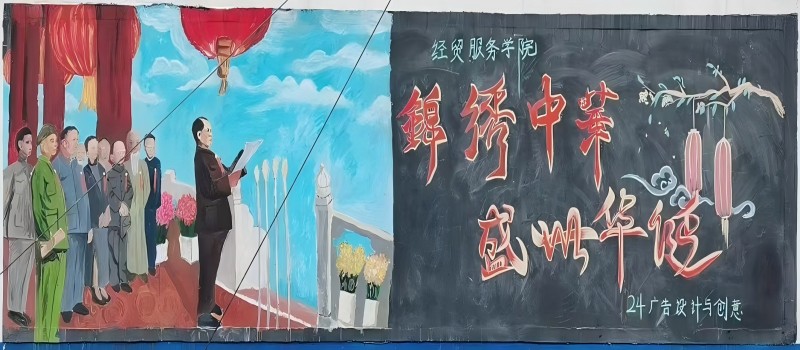 经贸服务学院
錦绣中華
盛州华传
24广告设计与创意